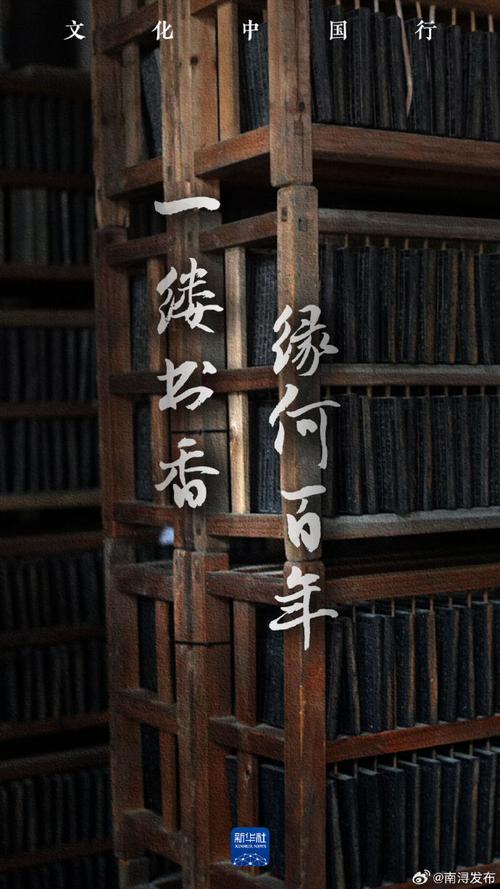 文化中国行
一缕书香
缘何百年
新华社
XINHUA NEWS
@南浔发布